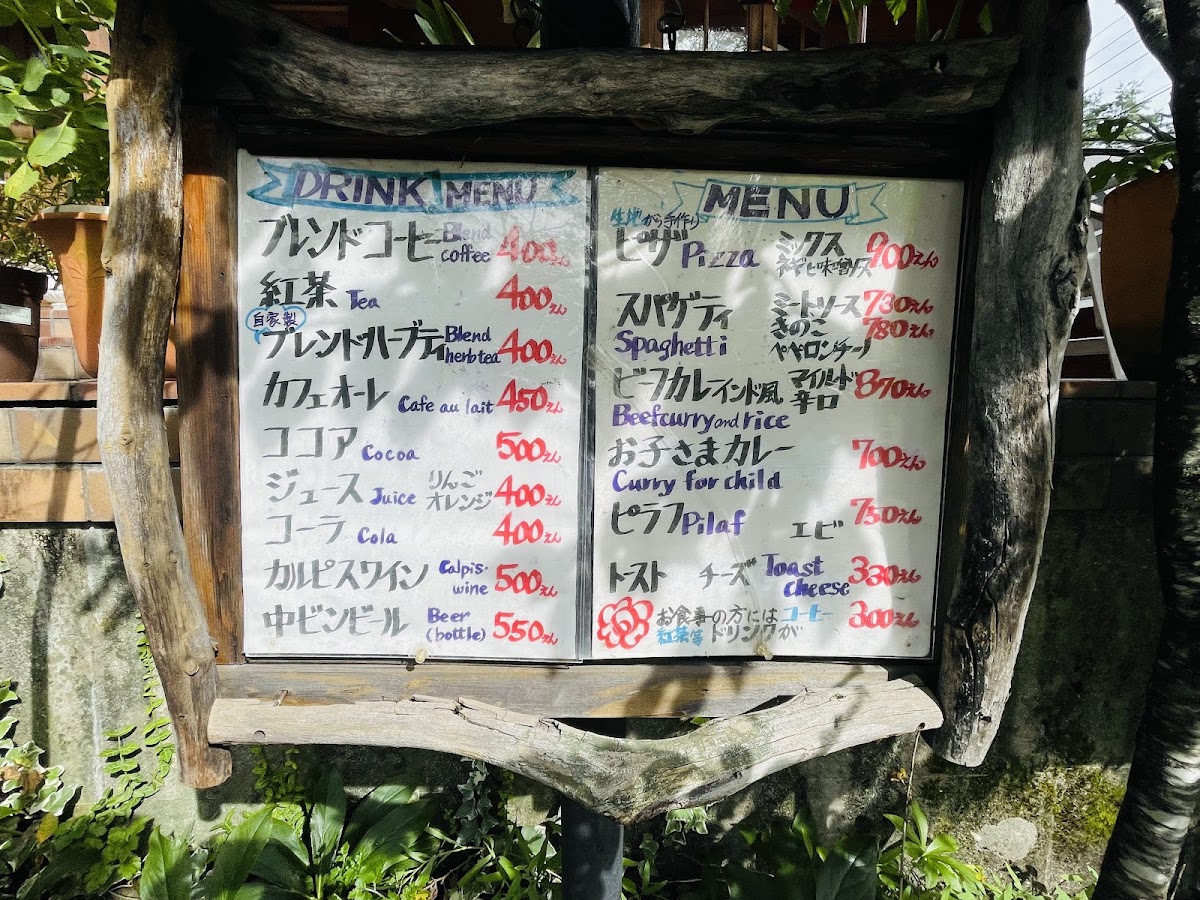 DRINK MENU
ブレンドコーヒー Blend coffee 400えん
紅茶 Tea 400えん
自家製
ブレンドハーブティ Blend herb tea 400えん
カフェオーレ Cafe au lait 450えん
ココア Cocoa 500えん
ジュース Juice りんご オレンジ 400えん
コーラ Cola 400えん
カルピスワイン Calpis・wine 500えん
中ビンビール Beer (bottle) 550えん
MENU
生地から手作り
ピザ Pizza ミックス 900えん
スパゲティ ミートソース 730えん
Spaghetti きのこ 780えん
ペペロンチーノ
ビーフカレーインド風 マイルド 辛口 870えん
Beefcurry and rice
お子さまカレー 700えん
Curry for child
ピラフ Pilaf エビ 750えん
トースト チーズ Toast cheese 330えん
お食事の方にはコーヒー 300えん
紅茶等ドリンクが